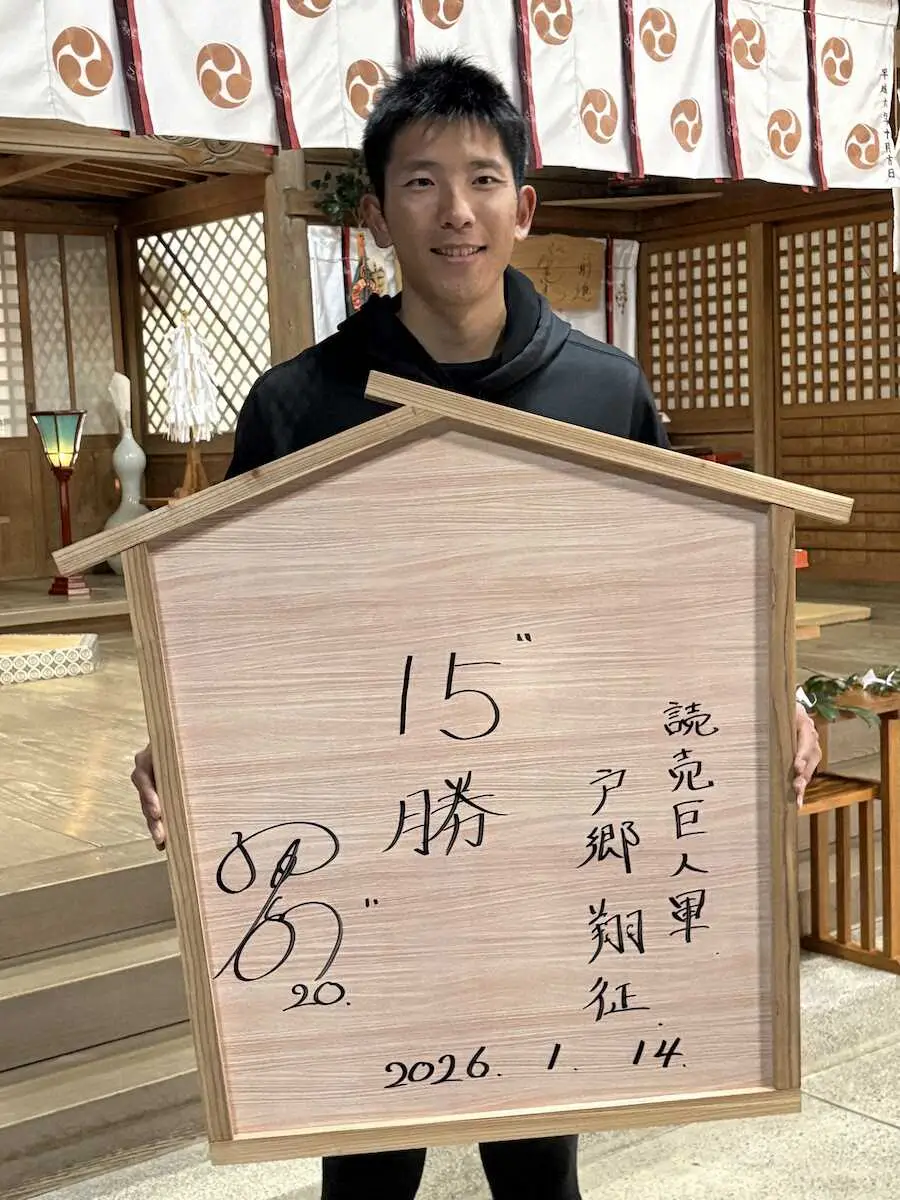 15
勝
読売巨人軍
戸郷翔征
20.
2026. 1. 14.